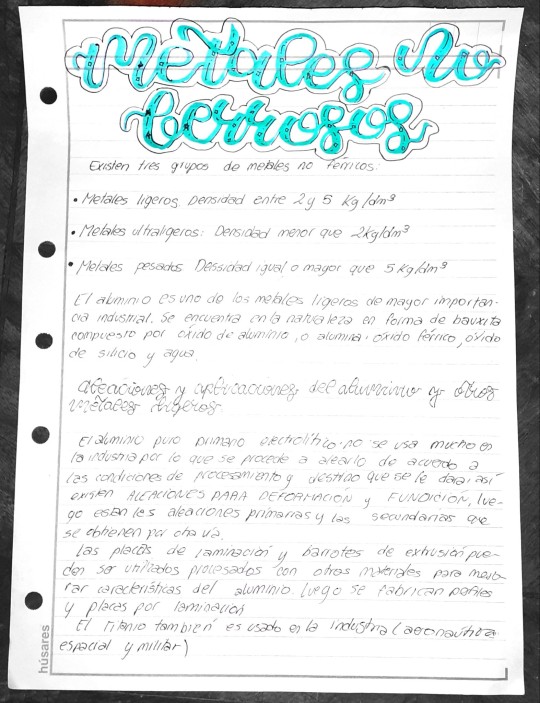 Metales no
ferrosos
Existen tres grupos de metales no férricos:
• Metales ligeros. Densidad entre 2 y 5 Kg/dm³
• Metales ultraligeros: Densidad menor que 2kg/dm³
• Metales pesados. Densidad igual o mayor que 5 Kg/dm³
El aluminio es uno de los metales ligeros de mayor importan-
cia industrial. Se encuentra en la naturaleza en forma de bauxita
compuesto por óxido de aluminio, o alumina, óxido férrico, óxido
de silicio y agua.
Aleaciones y aplicaciones del aluminio y otros
metales ligeros.
El aluminio puro primario electrolítico no se usa mucho en
la industria por lo que se procede a alearlo de acuerdo a
las condiciones de procesamiento y destino que se le dara; así
existen ALEACIONES PARA DEFORMACIÓN y FUNDICIÓN, lue-
go estan les aleaciones primarias y las secundarias que
se obtienen por otra vía.
Las placas de laminación y barrotes de extrusión pue-
den ser utilizados procesados con otros materiales para mejo-
rar características del aluminio. luego se fabrican perfiles
y placas por laminación
El titanio también es usado en la industria (aeronáutica
espacial y militar)
húsares